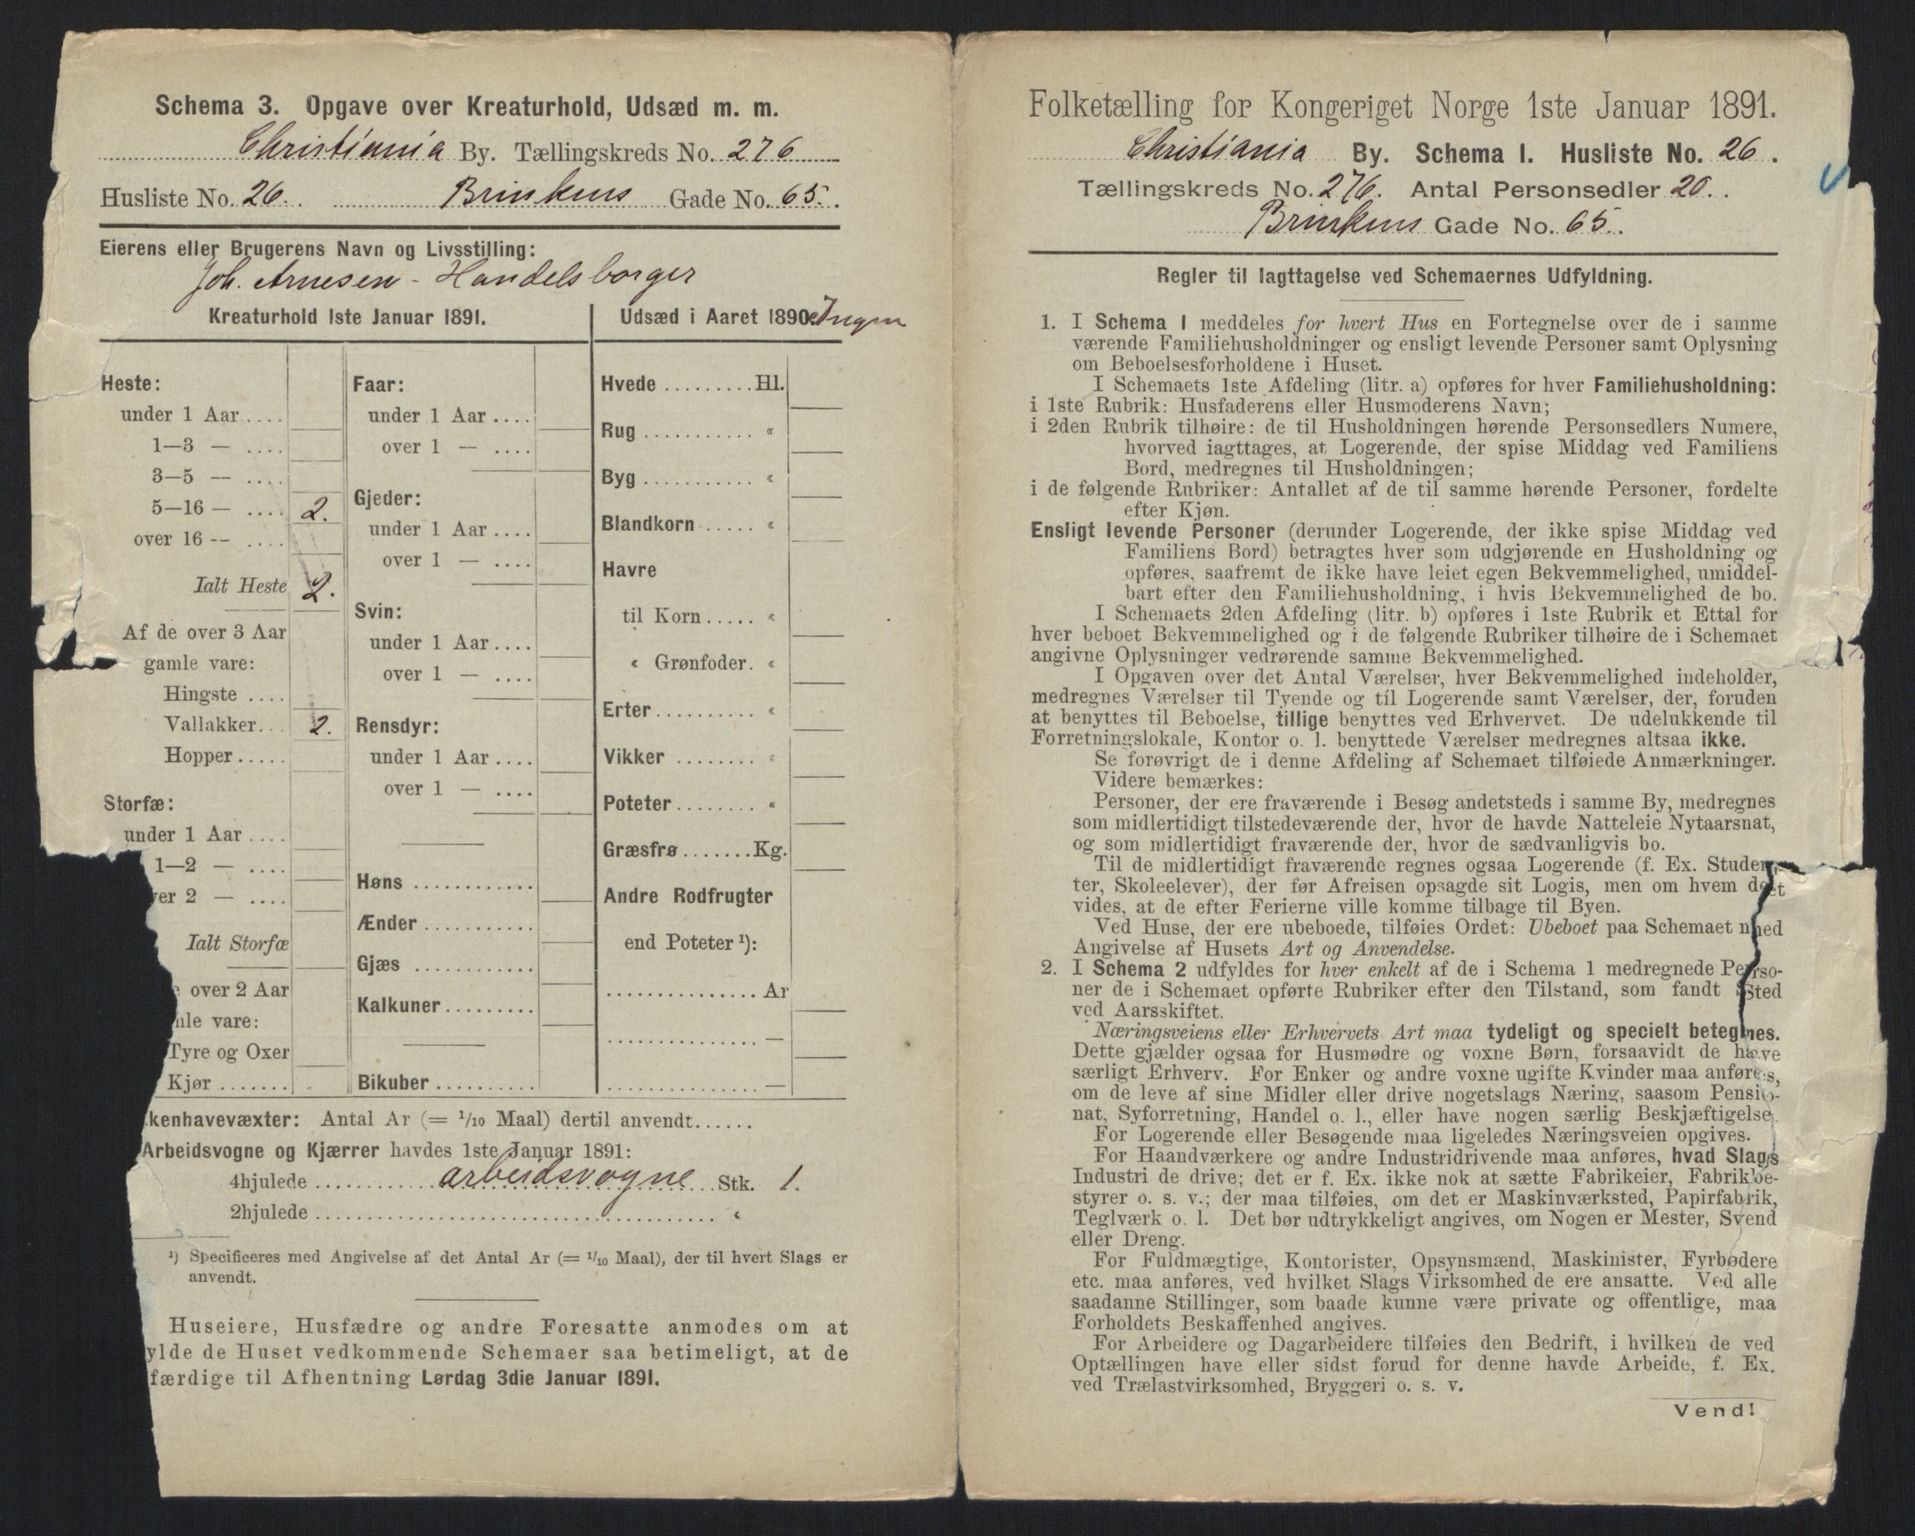 Schema 3. Opgave over Kreaturhold, Udsæd m. m.
Christiania By. Tællingskreds No. 276
Husliste No. 26. Brinkens Gade No. 65.
Eierens eller Brugerens Navn og Livsstilling:
Joh. Arnesen - Handelsborger
Kreaturhold 1ste Januar 1891.
Heste:
under 1 Aar ....
1—3 — ....
3—5 — ....
5—16 — .... 2.
over 16 -- ....
Ialt Heste 2.
Af de over 3 Aar
gamle vare:
Hingste ....
Vallakker... 2.
Hopper.....
Storfæ:
under 1 Aar ....
1—2 — ....
ver 2 — ....
Ialt Storfæ
e over 2 Aar
nle vare:
Tyre og Oxer
Kjør .......
Faar:
under 1 Aar ....
over 1 — ....
Gjeder:
under 1 Aar ....
over 1 — ....
Svin:
under 1 Aar....
over 1 — ....
Rensdyr:
under 1 Aar ....
over 1 — ....
Høns ............
Ænder ...........
Gjæs ............
Kalkuner.........
Bikuber ..........
Udsæd i Aaret 1890. Ingen
Hvede .........Hl.
Rug ........... «
Byg ........... «
Blandkorn ..... «
Havre
til Korn..... «
« Grønfoder. «
Erter.......... «
Vikker ........ «
Poteter........ «
Græsfrø.......Kg.
Andre Rodfrugter
end Poteter ¹):
............... Ar
............... —
............... —
kenhavevæxter: Antal Ar (= 1/10 Maal) dertil anvendt......
Arbeidsvogne og Kjærrer havdes 1ste Januar 1891:
4hjulede ........... arbeidsvogne Stk. 1.
2hjulede ........................................ «
¹) Specificeres med Angivelse af det Antal Ar (= 1/10 Maal), der til hvert Slags er
anvendt.
Huseiere, Husfædre og andre Foresatte anmodes om at
ylde de Huset vedkommende Schemaer saa betimeligt, at de
færdige til Afhentning Lørdag 3die Januar 1891.
Folketælling for Kongeriget Norge 1ste Januar 1891.
Christiania By. Schema I. Husliste No. 26.
Tællingskreds No. 276. Antal Personsedler 20.
Brinkens Gade No. 65.
Regler til Iagttagelse ved Schemaernes Udfyldning.
1. I Schema I meddeles for hvert Hus en Fortegnelse over de i samme
værende Familiehusholdninger og ensligt levende Personer samt Oplysning
om Beboelsesforholdene i Huset.
I Schemaets 1ste Afdeling (litr. a) opføres for hver Familiehusholdning:
i 1ste Rubrik: Husfaderens eller Husmoderens Navn;
i 2den Rubrik tilhøire: de til Husholdningen hørende Personsedlers Numere,
hvorved iagttages, at Logerende, der spise Middag ved Familiens
Bord, medregnes til Husholdningen;
i de følgende Rubriker: Antallet af de til samme hørende Personer, fordelte
efter Kjøn.
Ensligt levende Personer (derunder Logerende, der ikke spise Middag ved
Familiens Bord) betragtes hver som udgjørende en Husholdning og
opføres, saafremt de ikke have leiet egen Bekvemmelighed, umiddel-
bart efter den Familiehusholdning, i hvis Bekvemmelighed de bo.
I Schemaets 2den Afdeling (litr. b) opføres i 1ste Rubrik et Ettal for
hver beboet Bekvemmelighed og i de følgende Rubriker tilhøire de i Schemaet
angivne Oplysninger vedrørende samme Bekvemmelighed.
I Opgaven over det Antal Værelser, hver Bekvemmelighed indeholder,
medregnes Værelser til Tyende og til Logerende samt Værelser, der, foruden
at benyttes til Beboelse, tillige benyttes ved Erhvervet. De udelukkende til
Forretningslokale, Kontor o. l. benyttede Værelser medregnes altsaa ikke.
Se forøvrigt de i denne Afdeling af Schemaet tilføiede Anmærkninger.
Videre bemærkes:
Personer, der ere fraværende i Besøg andetsteds i samme By, medregnes
som midlertidigt tilstedeværende der, hvor de havde Natteleie Nytaarsnat,
og som midlertidigt fraværende der, hvor de sædvanligvis bo.
Til de midlertidigt fraværende regnes ogsaa Logerende (f. Ex. Studen-
ter, Skoleelever), der før Afreisen opsagde sit Logis, men om hvem det
vides, at de efter Ferierne ville komme tilbage til Byen.
Ved Huse, der ere ubeboede, tilføies Ordet: Ubeboet paa Schemaet med
Angivelse af Husets Art og Anvendelse.
2. I Schema 2 udfyldes for hver enkelt af de i Schema 1 medregnede Perso-
ner de i Schemaet opførte Rubriker efter den Tilstand, som fandt Sted
ved Aarsskiftet.
Næringsveiens eller Erhvervets Art maa tydeligt og specielt betegnes.
Dette gjælder ogsaa for Husmødre og voxne Børn, forsaavidt de have
særligt Erhverv. For Enker og andre voxne ugifte Kvinder maa anføres,
om de leve af sine Midler eller drive nogetslags Næring, saasom Pensio-
nat, Syforretning, Handel o. l., eller have nogen særlig Beskjæftigelse.
For Logerende eller Besøgende maa ligeledes Næringsveien opgives.
For Haandværkere og andre Industridrivende maa anføres, hvad Slags
Industri de drive; det er f. Ex. ikke nok at sætte Fabrikeier, Fabrikbe-
styrer o. s. v.; der maa tilføies, om det er Maskinværksted, Papirfabrik,
Teglværk o. l. Det bør udtrykkeligt angives, om Nogen er Mester, Svend
eller Dreng.
For Fuldmægtige, Kontorister, Opsynsmænd, Maskinister, Fyrbødere
etc. maa anføres, ved hvilket Slags Virksomhed de ere ansatte. Ved alle
saadanne Stillinger, som baade kunne være private og offentlige, maa
Forholdets Beskaffenhed angives.
For Arbeidere og Dagarbeidere tilføies den Bedrift, i hvilken de ved
Optællingen have eller sidst forud for denne havde Arbeide, f. Ex.
ved Trælastvirksomhed, Bryggeri o. s. v.
Vend!